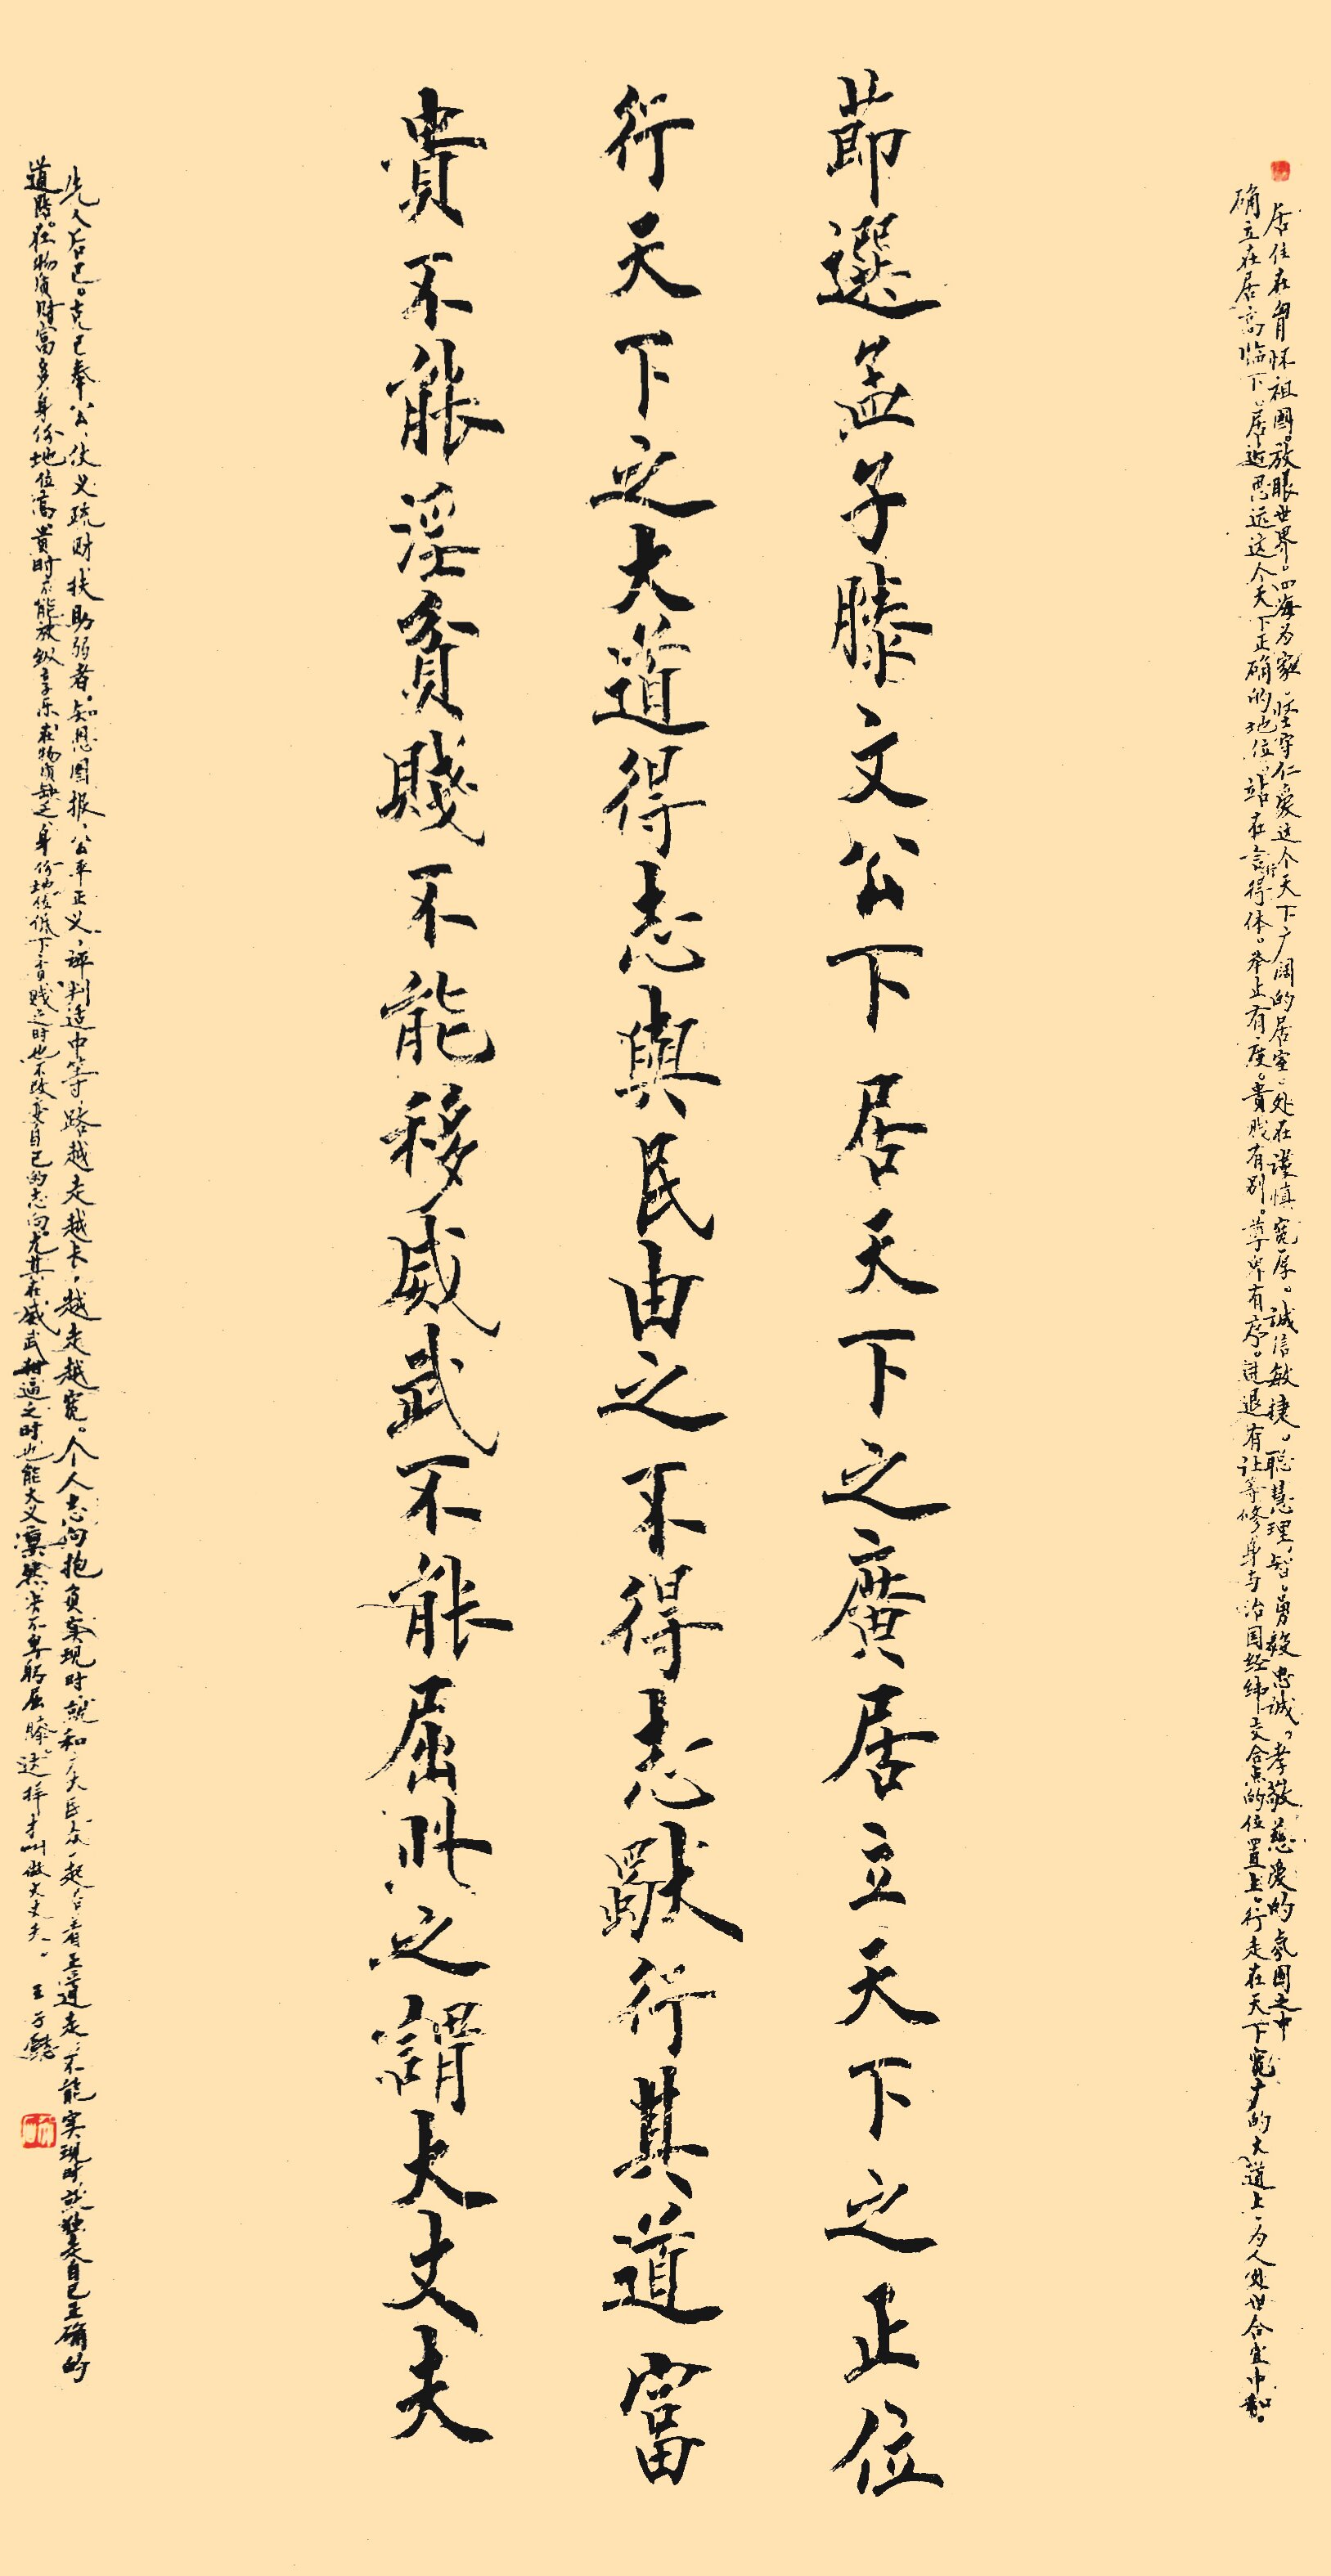 居住在胷怀祖國。放眼世界。四海为家、坚守仁爱这个天下广阔的居室、处在谨慎宽厚。诚信敏捷。聪慧理智、勇毅忠诚。孝敬慈爱的氛围之中
确立在居高临下、居近思远这个天下正确的地位。站在言行得体。举止有度。貴贱有别。尊卑有序。进退有让等修身与治国经纬交合点的位置上、行走在天下宽广的大道上、为人处世合宜中和。
莭選孟子滕文公下居天下之廣居立天下之正位
行天下之大道得志與民由之不得志獨行其道富
貴不能淫貧賤不能移威武不能屈此之謂大丈夫
先人后己。克己奉公、仗义疏财扶助弱者。知恩图报、公平正义、评判适中等、路越走越长、越走越宽。个人志向抱负实现时、就和广大民众一起合着正道走、不能实现时、就独走自己正确的
道路。在物质财富多、身份地位高贵时不能放纵享乐在物质缺乏、身份地位低下贫贱之时也不改变自己的志向。尤其在威武相逼之时也能大义凛然决不卑躬屈膝。这样才叫做大丈夫。 王子